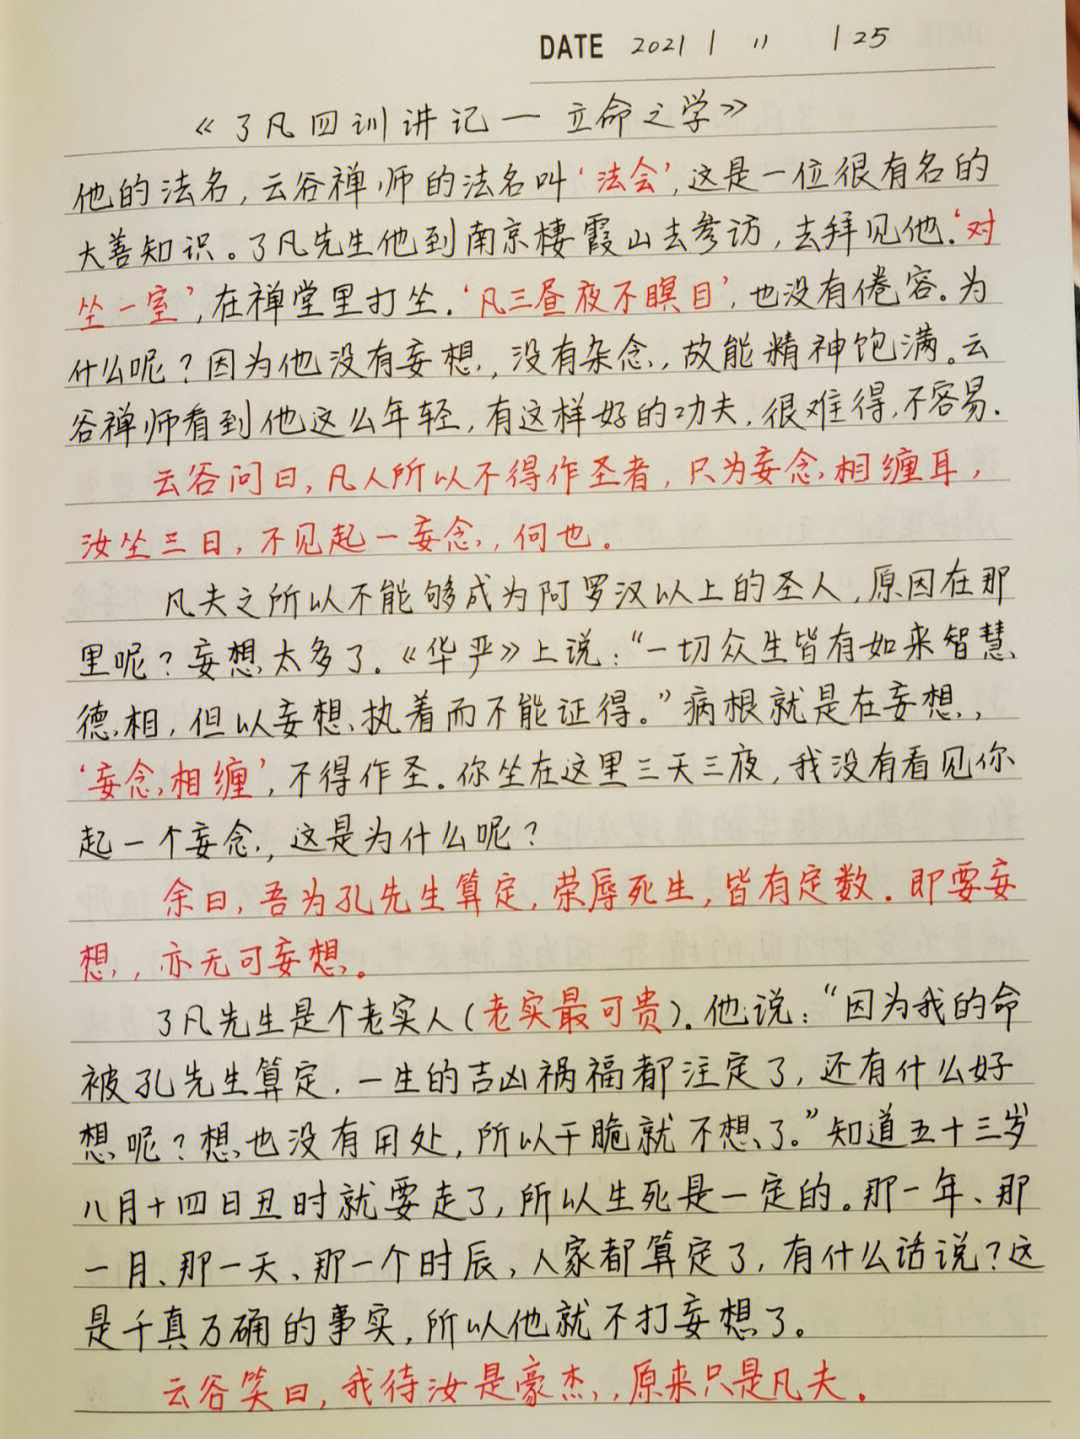 DATE 2021 | 11 | 25
《了凡四训讲记一立命之学》
他的法名，云谷禅师的法名叫‘法会’，这是一位很有名的
大善知识。了凡先生他到南京棲霞山去参访，去拜见他.‘对
坐一室’，在禅堂里打坐.‘凡三昼夜不瞑目’，也没有倦容。为
什么呢？因为他没有妄想，没有杂念，故能精神饱满。云
谷禅师看到他这么年轻，有这样好的功夫，很难得，不容易.
云谷问曰，凡人所以不得作圣者，只为妄念相缠耳，
汝坐三日，不见起一妄念，何也。
凡夫之所以不能够成为阿罗汉以上的圣人，原因在那
里呢？妄想太多了.《华严》上说：“一切众生皆有如来智慧
德相，但以妄想、执着而不能证得。”病根就是在妄想，
‘妄念相缠’，不得作圣.你坐在这里三天三夜，我没有看见你
起一个妄念，这是为什么呢？
余曰，吾为孔先生算定，荣辱死生，皆有定数.即要妄
想，亦无可妄想。
了凡先生是个老实人(老实最可贵).他说：“因为我的命
被孔先生算定.一生的吉凶祸福都注定了，还有什么好
想呢？想也没有用处，所以干脆就不想了。”知道五十三岁
八月十四日丑时就要走了，所以生死是一定的。那一年、那
一月、那一天、那一个时辰，人家都算定了，有什么话说？这
是千真万确的事实，所以他就不打妄想了。
云谷笑曰，我待汝是豪杰，原来只是凡夫。